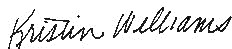 Kristin Williams